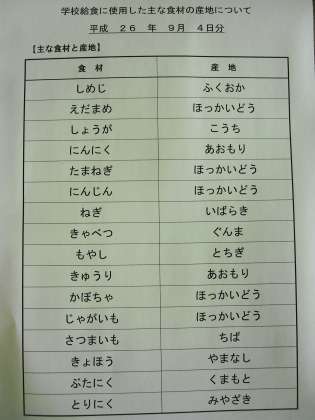 学校給食に使用した主な食材の産地について
平成 ２６ 年 ９月 ４日分
【主な食材と産地】
食 材 産 地
しめじ ふくおか
えだまめ ほっかいどう
しょうが こうち
にんにく あおもり
たまねぎ ほっかいどう
にんじん ほっかいどう
ねぎ いばらき
きゃべつ ぐんま
もやし とちぎ
きゅうり あおもり
かぼちゃ ほっかいどう
じゃがいも ほっかいどう
さつまいも ちば
きょほう やまなし
ぶたにく くまもと
とりにく みやざき